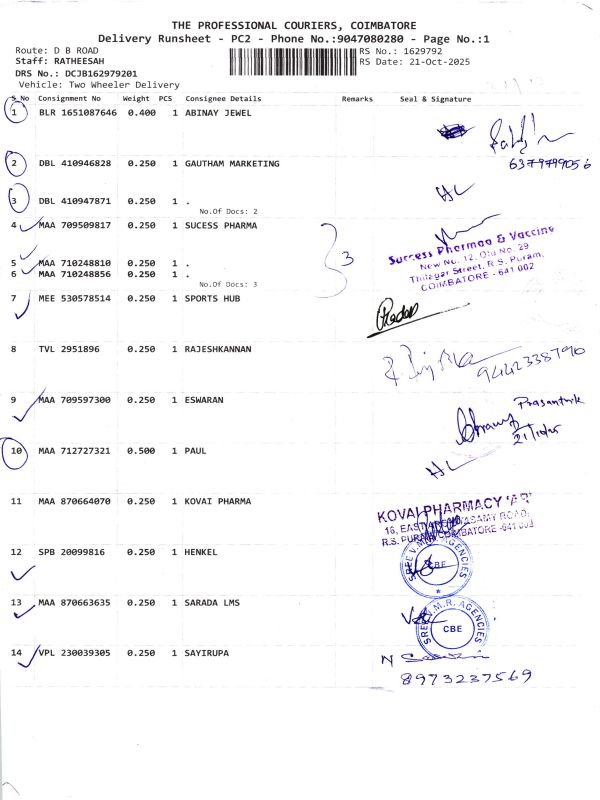 THE PROFESSIONAL COURIERS, COIMBATORE
Delivery Runsheet - PC2 - Phone No.:9047080280 - Page No.:1
Route: D B ROAD RS No.: 1629792
Staff: RATHEESAH RS Date: 21-Oct-2025
DRS No.: DCJB162979201
Vehicle: Two Wheeler Delivery
S No Consignment No Weight PCS Consignee Details Remarks Seal & Signature
1 BLR 1651087646 0.400 1 ABINAY JEWEL
2 DBL 410946828 0.250 1 GAUTHAM MARKETING
6379799056
3 DBL 410947871 0.250 1 .
No.Of Docs: 2
4 MAA 709509817 0.250 1 SUCESS PHARMA
3
Success Pharmaa & Vaccine
New No. 12, Old No. 29
Thilagar Street, R.S. Puram,
COIMBATORE - 641 002
5 MAA 710248810 0.250 1 .
6 MAA 710248856 0.250 1 .
No.Of Docs: 3
7 MEE 530578514 0.250 1 SPORTS HUB
8 TVL 2951896 0.250 1 RAJESHKANNAN
9442338790
9 MAA 709597300 0.250 1 ESWARAN
10 MAA 712727321 0.500 1 PAUL
11 MAA 870664070 0.250 1 KOVAI PHARMA
KOVAI PHARMACY
12 SPB 20099816 0.250 1 HENKEL
SREE V.M.R. AGENCIES
CBE
13 MAA 870663635 0.250 1 SARADA LMS
SREE V.M.R. AGENCIES
CBE
14 VPL 230039305 0.250 1 SAYIRUPA
8973237569